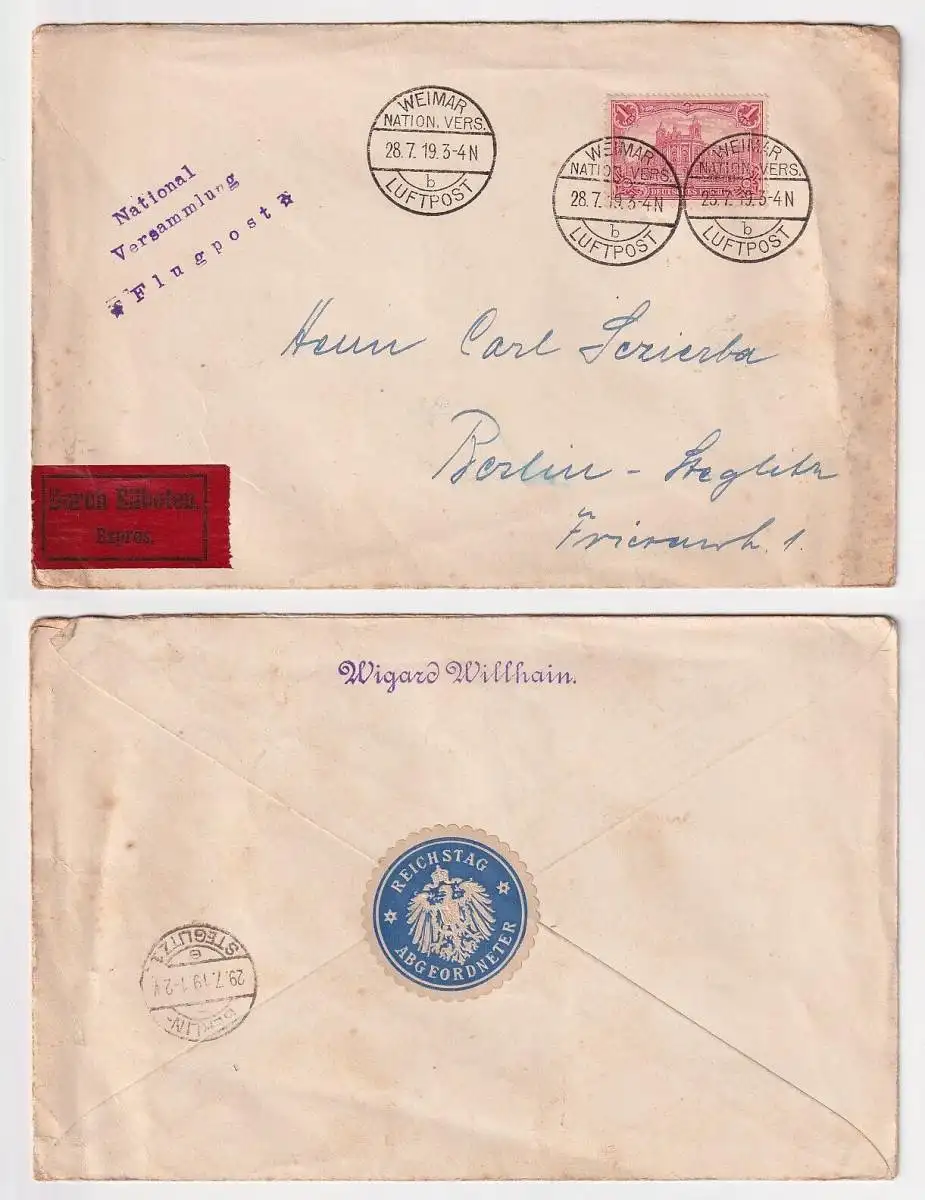 WEIMAR
NATION. VERS.
28.7.19.3-4N
b
LUFTPOST
WEIMAR
NATION. VERS.
28.7.19.3-4N
b
LUFTPOST
WEIMAR
NATION. VERS.
28.7.19.3-4N
b
LUFTPOST
1
1
DEUTSCHES REICH
National
Versammlung
Flugpost
Herrn Carl Serierba
Berlin - Steglitz
1.
Durch Eilboten.
Expres.
Wigard Willhain.
REICHSTAG
ABGEORDNETER
BERLIN-
29.7.19.1-2
STEGLITZ 1